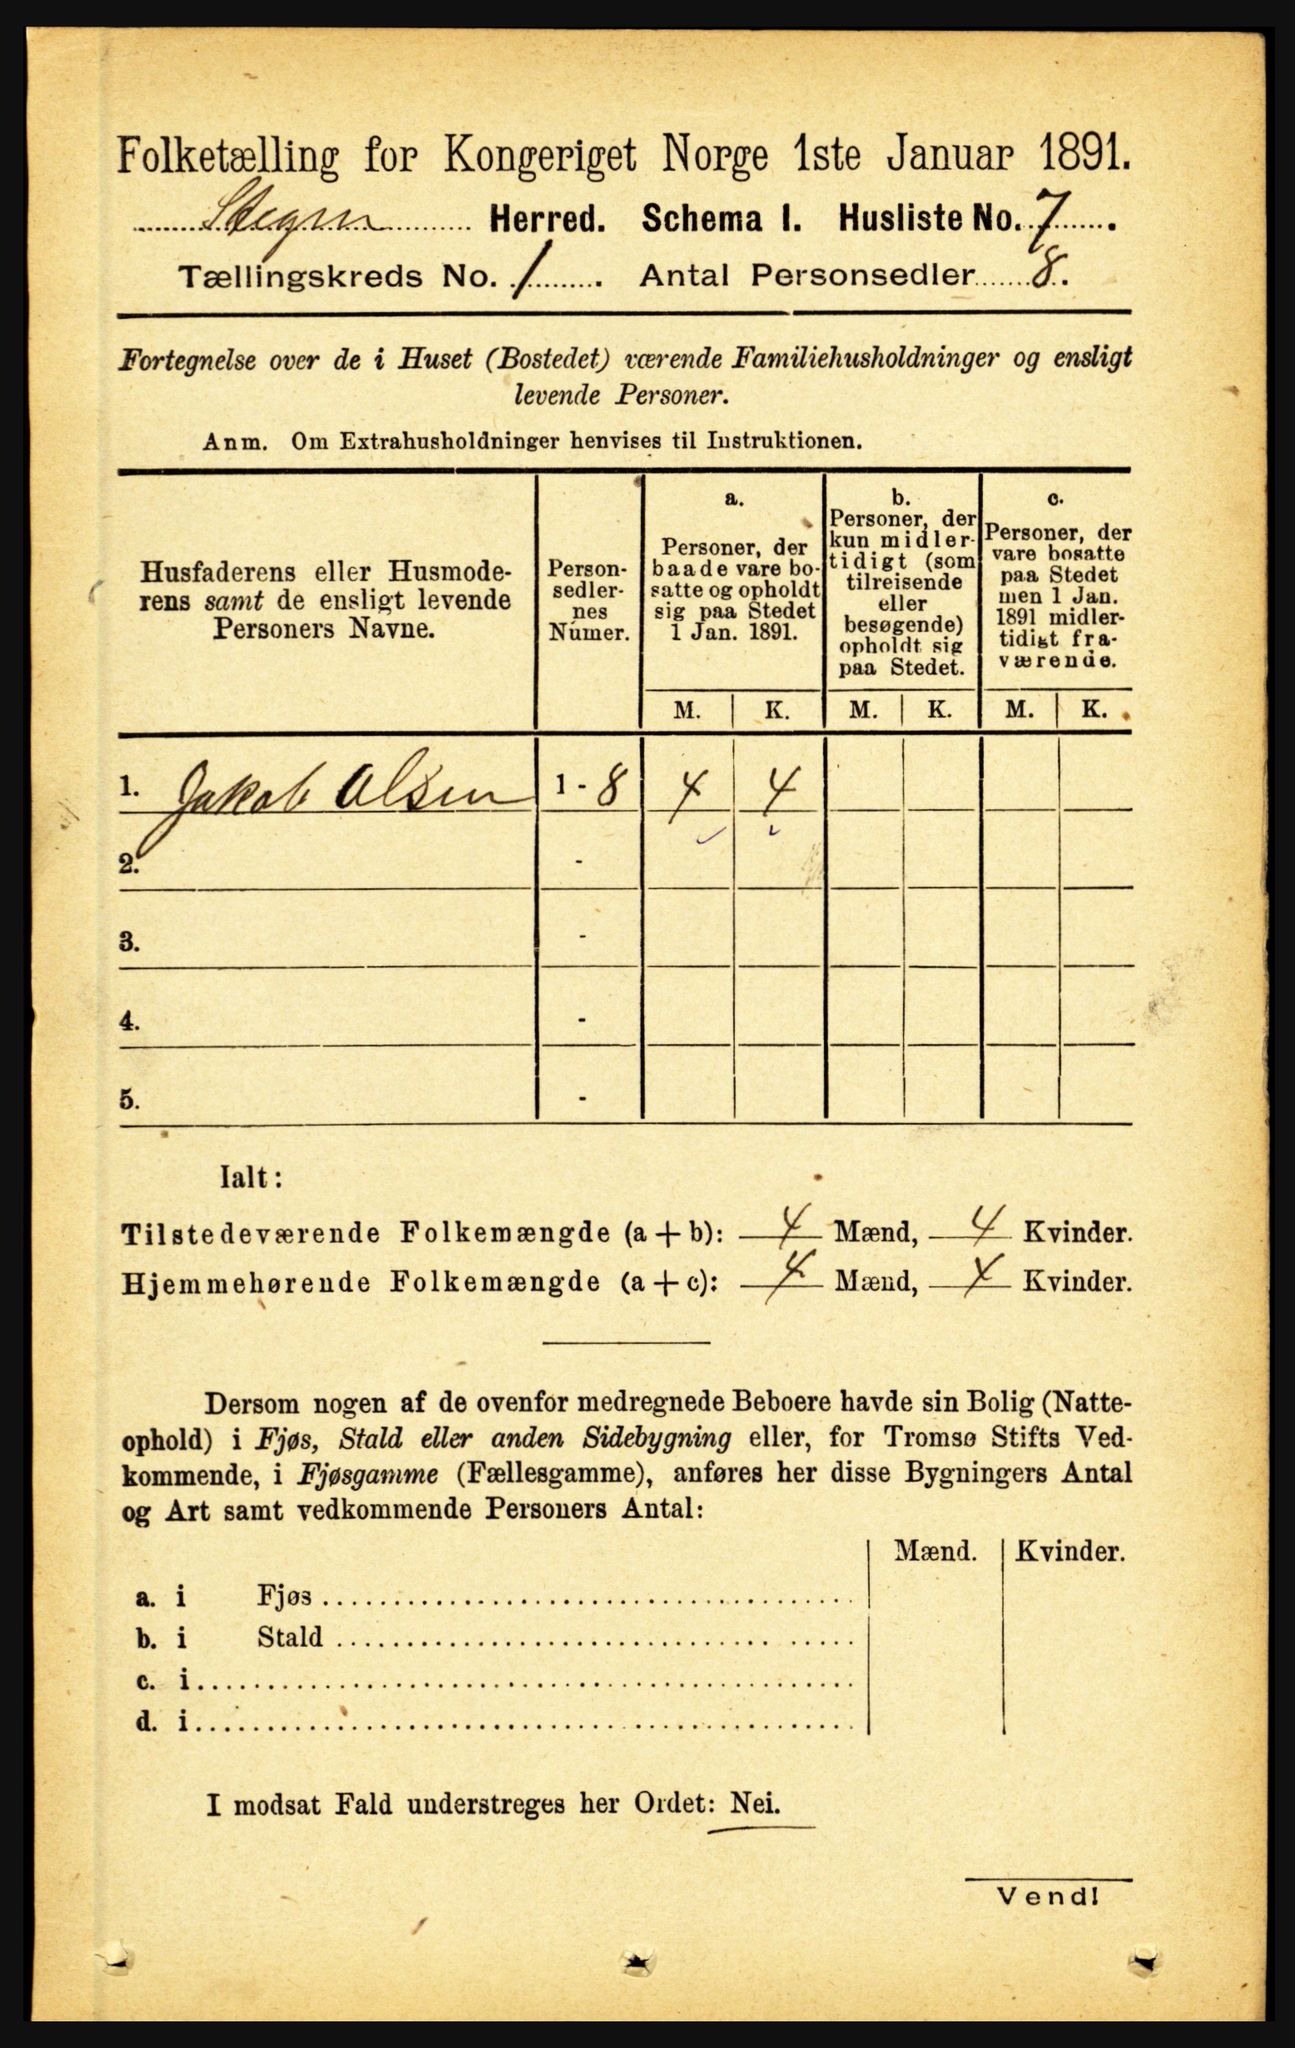 Folketælling for Kongeriget Norge 1ste Januar 1891.
Stegen Herred. Schema I. Husliste No. 7.
Tællingskreds No. 1. Antal Personsedler 8.
Fortegnelse over de i Huset (Bostedet) værende Familiehusholdninger og ensligt
levende Personer.
Anm. Om Extrahusholdninger henvises til Instruktionen.
Husfaderens eller Husmode-
rens samt de ensligt levende
Personers Navne.
Person-
sedler-
nes
Numer.
a.
Personer, der
baade vare bo-
satte og opholdt
sig paa Stedet
1 Jan. 1891.
b.
Personer, der
kun midler-
tidigt (som
tilreisende
eller
besøgende)
opholdt sig
paa Stedet.
c.
Personer, der
vare bosatte
paa Stedet
men 1 Jan.
1891 midler-
tidigt fra-
værende.
M. K. M. K. M. K.
1. Jakob Olsen 1 - 8 4 4
2. -
3. -
4. -
5. -
Ialt:
Tilstedeværende Folkemængde (a + b): 4 Mænd, 4 Kvinder.
Hjemmehørende Folkemængde (a + c): 4 Mænd, 4 Kvinder.
Dersom nogen af de ovenfor medregnede Beboere havde sin Bolig (Natte-
ophold) i Fjøs, Stald eller anden Sidebygning eller, for Tromsø Stifts Ved-
kommende, i Fjøsgamme (Fællesgamme), anføres her disse Bygningers Antal
og Art samt vedkommende Personers Antal:
Mænd. Kvinder.
a. i Fjøs
b. i Stald
c. i
d. i
I modsat Fald understreges her Ordet: Nei.
Vend!